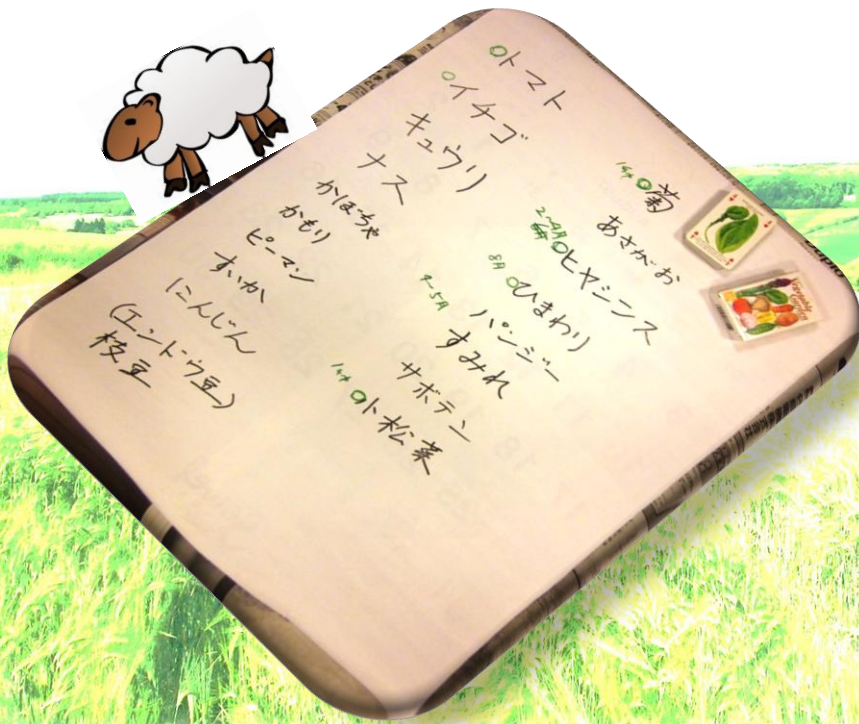 ○トマト
○イチゴ
キュウリ
ナス
かぼちゃ
かもり
ピーマン
すいか
にんじん
(エンドウ豆)
枝豆
○菊
あさがお
2~4月
○ヒヤシンス
8月 ○ひまわり
4~5月
パンジー
すみれ
サボテン
○小松菜